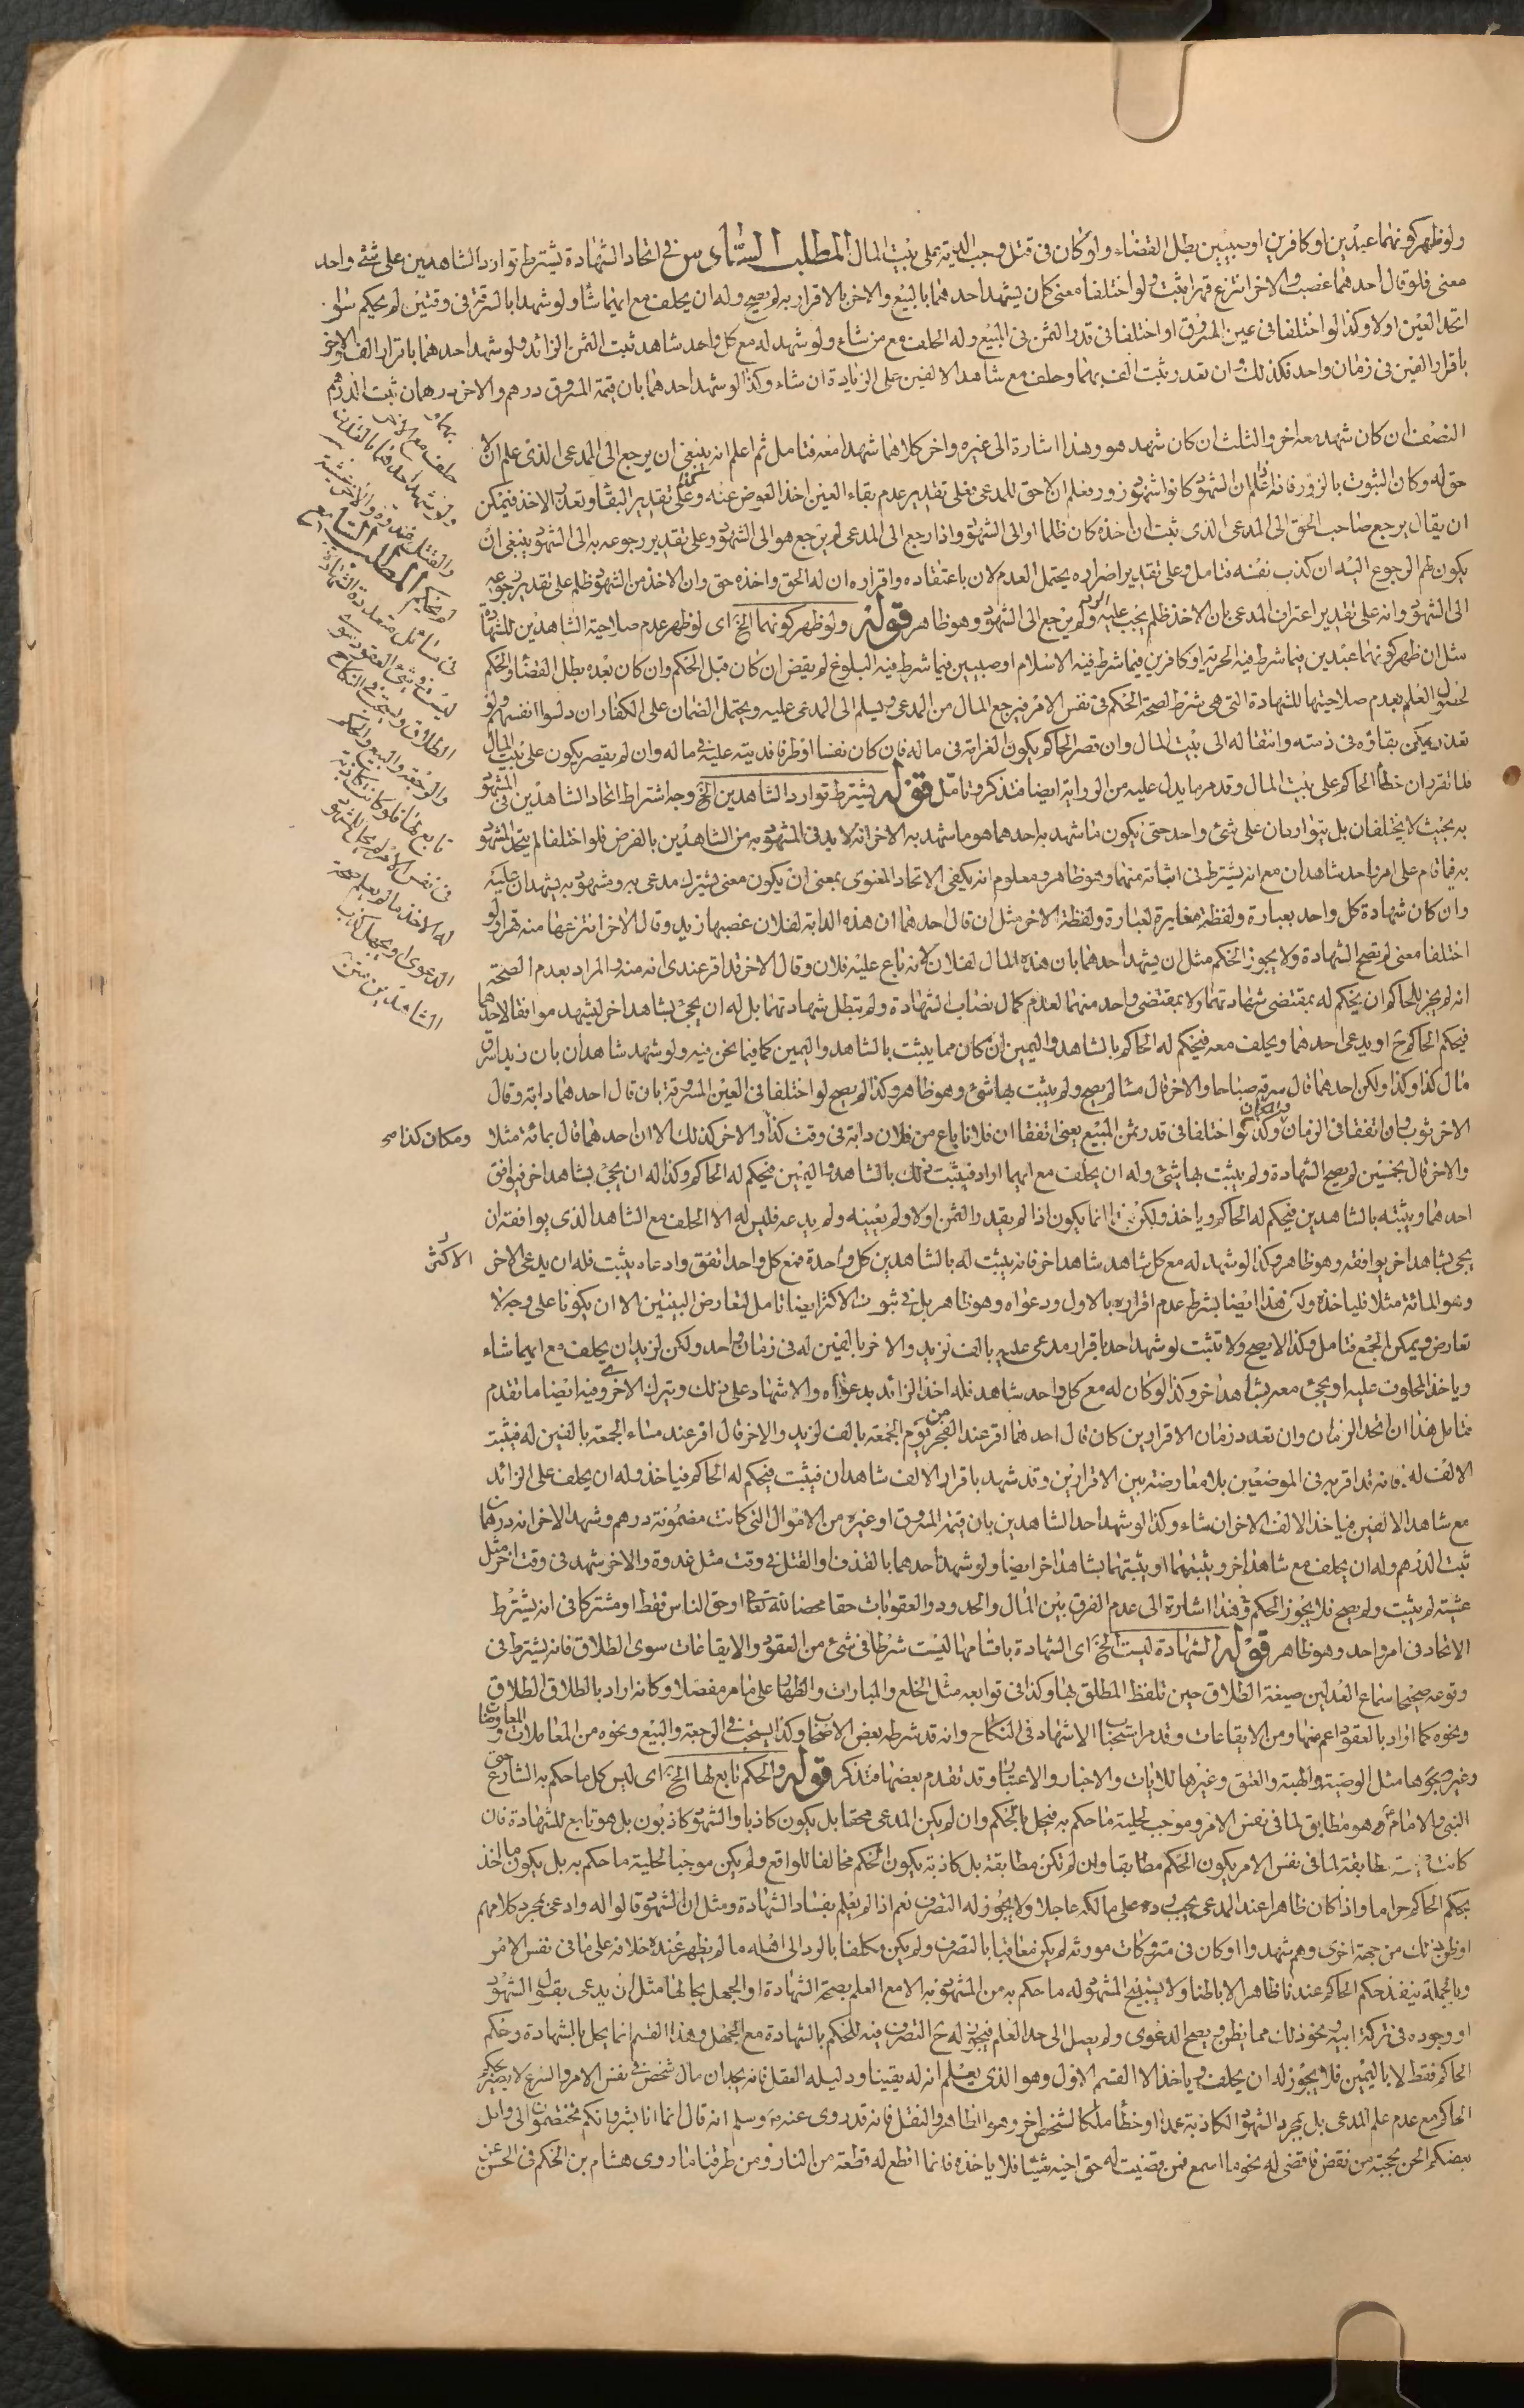 ولو ظهر كونهما عبدين او كافرين او صبيين بطل القضاء ولو كان فى قتل وجب الدية على بيت المال المطلب السادس فى اتحاد الشهادة يشترط توارد الشاهدين على شئ واحد
معنى فلو قال احدهما غصب والاخر انتزع قهرا ثبت ولو اختلفا معنى كان يشهد احدهما بالبيع والاخر بالاقرار به لم يصح وله ان يحلف مع ايهما شاء ولو شهدا بالسرقة فى وقتين لم يحكم سواء
اتحد العين او لا وكذا لو اختلفا فى عين المسروق او اختلفا فى قدر الثمن فى المبيع وله الحلف مع من شاء ولو شهد له مع كل واحد شاهد ثبت الثمن الزائد ولو شهد احدهما باقرار الف والاخر
باقرار الفين فى زمان واحد فكذلك وان تعدد ثبت الف بهما وحلف مع شاهد الالفين على الزيادة ان شاء وكذا لو شهد احدهما بان قيمة المسروق درهم والاخر درهمان ثبت الدرهم
بهما
حلف مع الاخر
ولو شهد احدهما بالقذف
والقتل غدوة والاخر عشية
لم يحكم المطلب السابع
فى مسائل متعددة الشهادة
ليست فى شئ من العقود سوى
الطلاق ويستحب فى النكاح
والرجعة والبيع والحكم
تابع لها فلو كانت كاذبة
فى نفس الامر لم يحل للمشهود
له الاخذ ما لم يعلم صحة
الدعوى او يجهل كذب
الشاهدين متن
النصف ان كان شهد معه اخر والثلث ان كان شهد هو وهذا اشارة الى غيره واخر كلاهما شهدا معه فتامل ثم اعلم انه ينبغى ان يرجع الى المدعى الذى علم ان لا
حق له وكان الثبوت بالزور فانه علم ان الشهود كانوا شهود زور فعلم ان لا حق للمدعى فعلى تقدير عدم بقاء العين اخذ العوض عنه وعلى تقدير البقاء وتعذر الاخذ فيمكن
ان يقال يرجع صاحب الحق الى المدعى الذى ثبت ان اخذه كان ظلما او الى الشهود واذا رجع الى المدعى لم يرجع هو الى الشهود وعلى تقدير رجوعه به الى الشهود ينبغى ان
يكون لهم الرجوع اليه ان كذب نفسه فتامل وعلى تقدير اصراره يحتمل العدم لان باعتقاده واقراره ان له الحق واخذه حق وان الاخذ من الشهود ظلم على تقدير رجوعه
الى الشهود وانه على تقدير اعتراف المدعى بان الاخذ ظلم يجب عليه الرد ولم يرجع الى الشهود وهو ظاهر قوله ولو ظهر كونهما الخ اى لو ظهر عدم صلاحية الشاهدين للشهادة
مثل ان ظهر كونهما عبدين فيما شرط فيه الحرية او كافرين فيما شرط فيه الاسلام او صبيين فيما شرط فيه البلوغ لم يقض ان كان قبل الحكم وان كان بعده بطل القضاء والحكم
لحصول العلم بعدم صلاحيتها للشهادة التى هى شرط لصحة الحكم فى نفس الامر فيرجع المال من المدعى ويسلم الى المدعى عليه ويحتمل الضمان على الكفار ان دلسوا انفسهم ولو
تعذر يمكن بقاؤه فى ذمته وانتقاله الى بيت المال وان قصر الحاكم يكون الغرامة فى ماله فان كان نفسا او طرفا فديته عليه فى ماله وان لم يقصر يكون على بيت المال
لما تقرر ان خطأ الحاكم على بيت المال وقد مر ما يدل عليه من الرواية ايضا فتذكر وتامل قوله يشترط توارد الشاهدين الخ وجه اشتراط اتحاد الشاهدين فى المشهود
به بحيث لا يختلفان بل يتواردان على شئ واحد حتى يكون ما شهد به احدهما هو ما شهد به الاخر انه لا بد فى المشهود به من الشاهدين بالفرض فلو اختلفا لم يتحد المشهود
به فما قام على امر واحد شاهدان مع انه يشترط فى اثباته منهما وهو ظاهر ومعلوم انه يكفى الاتحاد المعنوى بمعنى ان يكون معنى يشترك مدعى به ومشهود به يشهدان عليه
وان كان شهادة كل واحد بعبارة ولفظة مغايرة لعبارة ولفظة الاخر مثل ان قال احدهما ان هذه الدابة لفلان غصبها زيد وقال الاخر انتزعها منه قهرا ولو
اختلفا معنى لم تصح الشهادة ولا يجوز الحكم مثل ان يشهد احدهما بان هذه المال لفلان لانه باع عليه فلان وقال الاخر قد اقر عندى انه منه والمراد بعدم الصحة
انه لم يجز للحاكم ان يحكم له بمقتضى شهادتهما ولا بمقتضى واحد منهما لعدم كمال نصاب الشهادة ولم تبطل شهادتهما بل له ان يجئ بشاهد اخر ليشهد موافقا لاحدهما
فيحكم الحاكم ح او يدعى احدهما ويحلف معه فيحكم له الحاكم بالشاهد واليمين ان كان مما يثبت بالشاهد واليمين كما فيما نحن فيه ولو شهد شاهدان بان زيدا سرق
مال كذا وكذا ولكن احدهما قال سرقه صباحا والاخر قال مساء لم يصح ولم يثبت بها شئ وهو ظاهر وكذا لم يصح لو اختلفا فى العين المسروقة بان قال احدهما دابة وقال
الاخر ثوب وان اتفقا فى الزمان والمكان وكذا لو اختلفا فى قدر ثمن المبيع يعنى اتفقا ان فلانا باع من فلان دابة فى وقت كذا والاخر كذلك الا ان احدهما قال بمائة مثلا ومكان كذا صح
والاخر قال بخمسين لم يصح الشهادة ولم يثبت بها شئ وله ان يحلف مع ايهما اراد فيثبت ذلك بالشاهد واليمين فيحكم له الحاكم وكذا له ان يجئ بشاهد اخر فيوافق
احدهما ويثبته بالشاهدين فيحكم له الحاكم وياخذ ولكن هذا انما يكون اذا لم يقيد والثمن او لا ولم يعينه ولم يدعه فليس له الا الحلف مع الشاهد الذى يوافقه ان
يجئ بشاهد اخر يوافقه وهو ظاهر وكذا لو شهد له مع كل شاهد شاهد اخر فانه يثبت له بالشاهدين كل واحدة فمع كل واحد اتفق وادعاه يثبت فله ان يدعى الاخر الاكثر
وهو المائة مثلا فلياخذه ولكن هذا ايضا بشرط عدم اقراره بالاول ودعواه وهو ظاهر بل فى ثبوت الاكثر ايضا تامل لتعارض البينتين الا ان يكونا على وجه لا
تعارض ويمكن الجمع فتامل وكذا لا يصح ولا تثبت لو شهد احد باقرار مدعى عليه بالف لزيد والاخر بالفين له فى زمان واحد ولكن لزيد ان يحلف مع ايهما شاء
وياخذ المحلوف عليه او يجئ معه بشاهد اخر وكذا لو كان له مع كل واحد شاهد فله اخذ الزائد بدعواه والاشهاد على ذلك ويترك الاخر وفيه ايضا ما تقدم
فتامل هذا ان اتحد الزمان وان تعدد زمان الاقرارين كان قال احدهما اقر عند الفجر من يوم الجمعة بالف لزيد والاخر قال اقر عند مساء الجمعة بالفين له فيثبت
الالف له فانه قد اقر به فى الموضعين بلا معارضة بين الاقرارين وقد شهد باقرار الالف شاهدان فيثبت فيحكم له الحاكم فياخذ وله ان يحلف على الزائد
مع شاهد الالفين فياخذ الالف الاخر ان شاء وكذا لو شهد احد الشاهدين بان قيمة المسروق او غيره من الاموال التى كانت مضمونة درهم وشهد الاخر انه درهمان
ثبت الدرهم وله ان يحلف مع شاهد اخر ويثبتهما او يثبتهما بشاهد اخر ايضا ولو شهد احدهما بالقذف او القتل فى وقت مثل غدوة والاخر شهد فى وقت اخر مثل
عشية لم يثبت ولم يصح فلا يجوز الحكم وهذا اشارة الى عدم الفرق بين المال والحدود والعقوبات حقا محضا لله تعالى او حق الناس فقط او مشتركا فى انه يشترط
الاتحاد فى امر واحد وهو ظاهر قوله الشهادة ليست الخ اى الشهادة باقسامها ليست شرطا فى شئ من العقود والايقاعات سوى الطلاق فانه يشترط فى
وقوعه صحيحا سماع العدلين صيغة الطلاق حين تلفظ المطلق بها وكذا فى توابعه مثل الخلع والمبارات والظهار على ما مر مفصلا وكانه اراد بالطلاق الطلاق
ونحوه كما اراد بالعقود اعم منها ومن الايقاعات وقد مر استحباب الاشهاد فى النكاح وانه قد شرطه بعض الاصحاب وكذا يستحب فى الرجعة والبيع ونحوه من المعاملات والمعاوضات
وغيرهما مثل الوصية والهبة والعتق وغيرها للايات والاخبار والاعتبار وقد تقدم بعضها فتذكر قوله والحكم تابع لها الخ اى ليس كل ما حكم به الشارع حتى
النبى والامام هو مطابق لما فى نفس الامر وموجب لحلية ما حكم به فيحل بالحكم وان لم يكن المدعى محقا بل يكون كاذبا والشهود كاذبون بل هو تابع للشهادة فان
كانت مطابقة لما فى نفس الامر يكون الحكم مطابقا وان لم تكن مطابقة بل كاذبة يكون الحكم مخالفا للواقع ولم يكن موجبا لحلية ما حكم به بل يكون ما اخذ
بحكم الحاكم حراما واذا كان ظاهرا عند المدعى يجب رده على مالكه عاجلا ولا يجوز له التصرف نعم اذا لم يعلم بفساد الشهادة ومثل ان الشهود قالوا له وادعى بمجرد كلامهم
او ظن ذلك من جهة اخرى وهم شهدوا او كان فى متروكات مورثه لم يكن معاقبا بالتصرف ولم يكن مكلفا بالرد الى اهله ما لم يظهر عنده خلافه على ما فى نفس الامر
وبالجملة ينفذ حكم الحاكم عندنا ظاهرا لا باطنا ولا يستبيح المشهود له ما حكم به من المشهود به الا مع العلم بصحة الشهادة او الجهل بحالها مثل ان يدعى بقول الشهود
او وجوده فى تركة ابيه ونحو ذلك مما يظن ويصح الدعوى ولم يصل الى حد العلم فيجوز له ح التصرف فيه للحكم بالشهادة مع الجهل وهذا القسم انما يحل بالشهادة وحكم
الحاكم فقط لا باليمين فلا يجوز له ان يحلف وياخذ الا القسم الاول وهو الذى يعلم انه له يقينا ودليله العقل فانه يجد ان مال شخص فى نفس الامر والشرع لا يصير بحكم
الحاكم مع عدم علم المدعى بل بمجرد الشهود الكاذبة عمدا او خطأ ملكا لشخص اخر وهو الظاهر والنقل فانه قد روى عنه ص وسلم انه قال انما انا بشر وانكم تختصمون الى ولعل
بعضكم الحن بحجته من بعض فاقضى له نحو ما اسمع فمن قضيت له حق اخيه شيئا فلا ياخذه فانما اقطع له قطعة من النار ومن طرقنا ما روى هشام بن الحكم فى الحسن عن